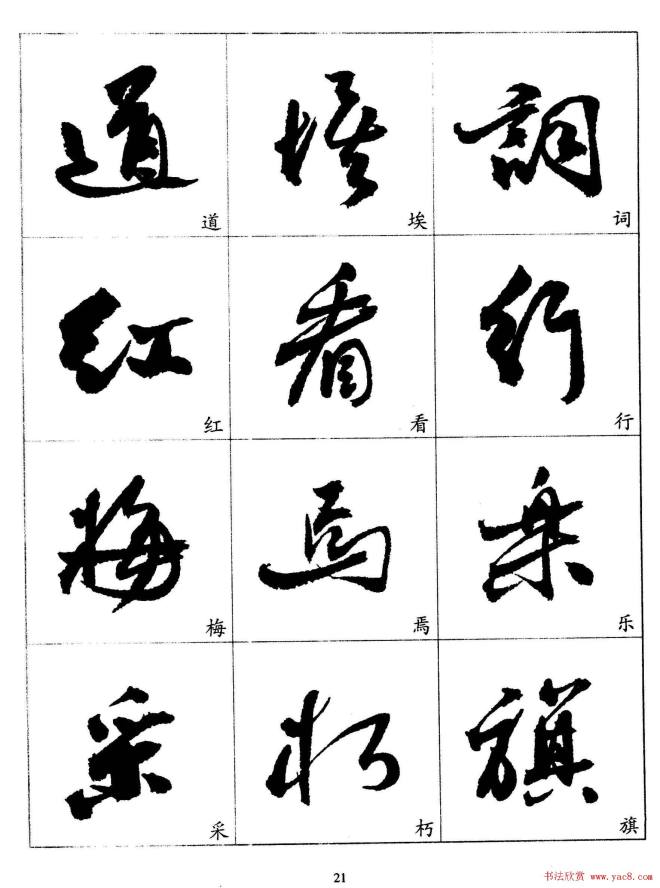 道 埃 詞
道 埃 词
红 看 行
红 看 行
梅 焉 乐
梅 焉 乐
采 朽 旗
采 朽 旗
21
书法欣赏 www.yac8.com